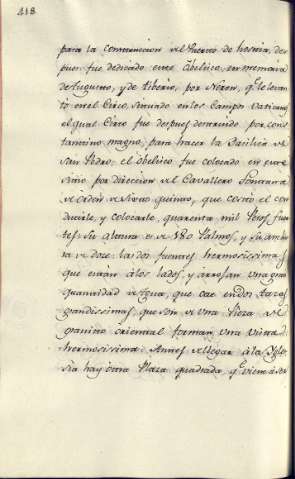 218
para la construccion del Puerto de hostia, des
pues fue dedicado este obelisco, en memoria
de Augusto, y de tiberio, por Neron, qe. le levan
tó en el Circo, situado en los Campos vaticanos
el qual Circo fue despues destruido por Cons
tantino magno, para hacer la Basilica de
San Pedro, el obelisco fue colocado en este
sitio por direccion del Cavallero Fontana
de orden de Sixto quinto, que costó el con
ducirle, y colocarle, quarenta mil Pesos fuer
tes. Su altura es de 180 Palmos, y su anchu
ra de doce. las dos fuentes hermosissimas,
que están á los lados, y arrojan una gran
quantidad de Agua, que cae en dos tazas
grandissimas, que son de una Pieza de
granito oriental forman una vista
hermosissima. Antes de llegar á la Igle
sia hay otra Plaza quadrada, qe. viene á ser